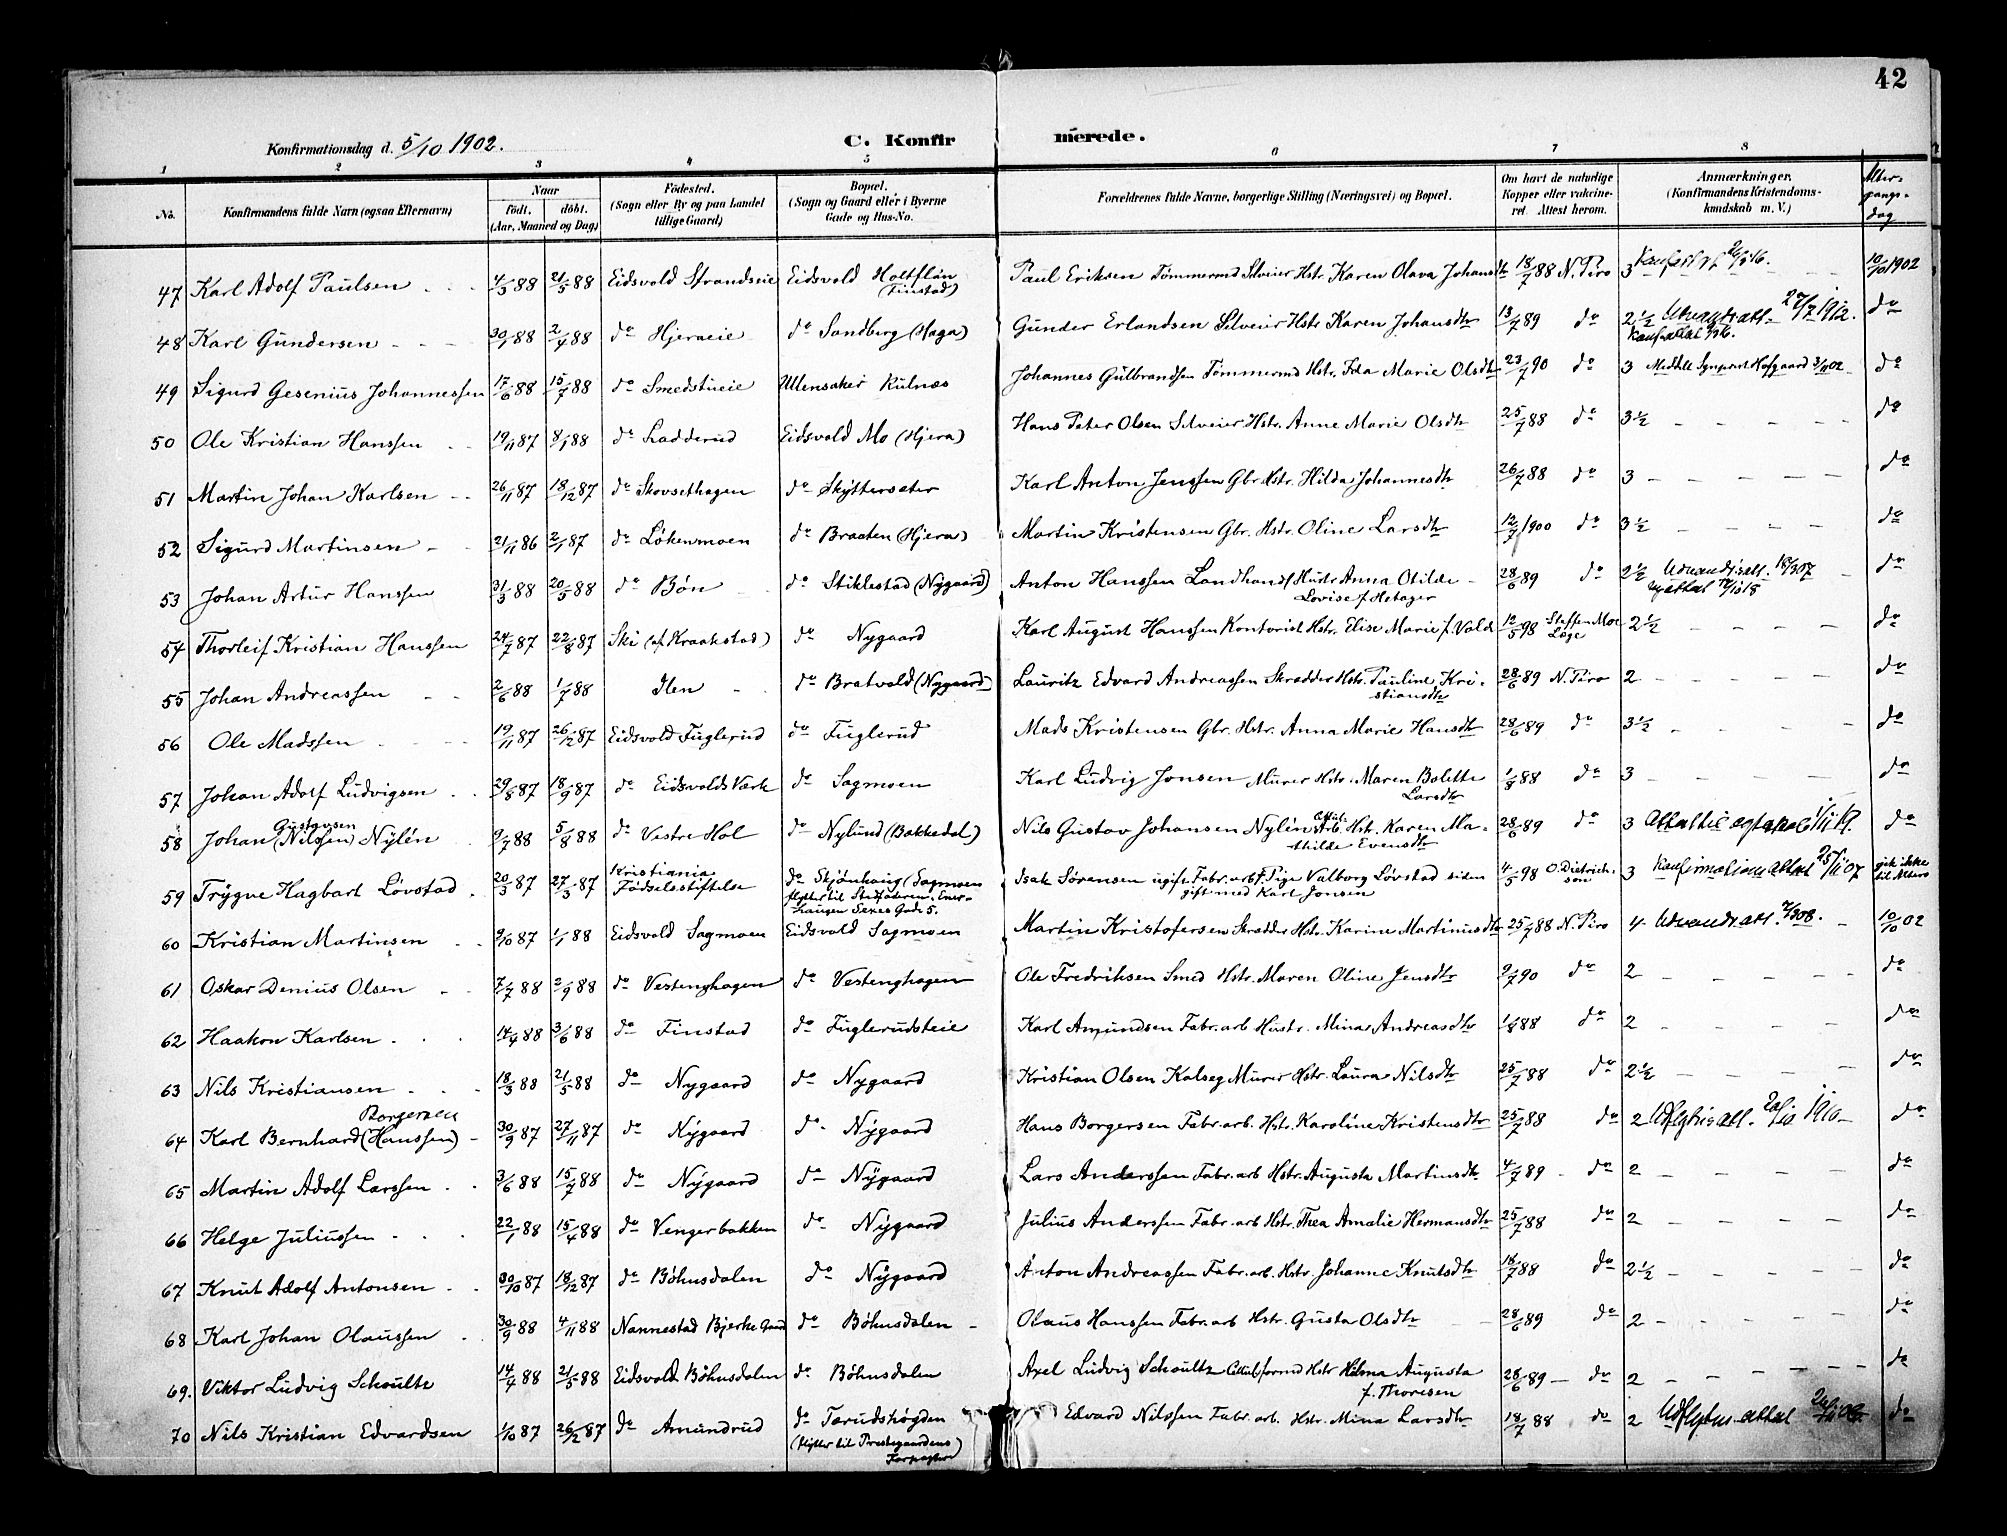 42
Konfirmationsdag d. 5/10 1902.
C. Konfirmerede.
1 2 3 4 5 6 7 8
No. Konfirmandens fulde Navn (ogsaa Efternavn) Naar født. døbt. (Aar, Maaned og Dag) Fødested. (Sogn eller By og paa Landet tillige Gaard) Bopæl. (Sogn og Gaard eller i Byerne Gade og Hus-No. Forældrenes fulde Navne, borgerlige Stilling (Næringsvei) og Bopæl. Om havt de naturlige Kopper eller vakcineret. Attest herom. Anmærkninger. (Konfirmandens Kristendomskundskab m. V.) Altergangsdag
47 Karl Adolf Paulsen 4/3 88 21/5 88 Eidsvold Strandseie Eidsvold Holtflån (Finstad) Paul Eriksen Tømmermd Selveier Hstr. Karen Olava Johansdtr 18/7 88 N. Piro 3 10/10 1902
48 Karl Gundersen 30/1 88 2/4 88 do Hjeraeie do Sandberg (Haga) Gunder Erlandsen Selveier Hstr Karen Johansdtr 13/7 89 do 2½ Udvandr.att. 27/7 1912. do
49 Sigurd Gesenius Johannessen 17/6 88 15/7 88 do Smedstueie Ullensaker Kulnæs Johannes Gulbrandsen Tømmermd Hstr. Ida Marie Olsdtr 23/7 90 do 3 3/11 02 do
50 Ole Kristian Hanssen 19/11 87 8/1 88 do Ladderud Eidsvold Mo (Hjera) Hans Peter Olsen Selveier Hstr. Anne Marie Olsdtr 25/7 88 do 3½ do
51 Martin Johan Karlsen 26/11 87 18/12 87 do Skovsethagen do Skyttersæter Karl Anton Jenssen Gbr. Hstr. Hilda Johannesdtr 26/7 88 do 3 do
52 Sigurd Martinsen 21/11 86 2/1 87 do Løkenmoen do Braaten (Hjera) Martin Kristensen Gbr. Hstr. Oline Larsdtr 12/7 1900 do 3½ do
53 Johan Artur Hanssen 31/3 88 20/5 88 do Bøn do Stiklestad (Nygaard) Anton Hanssen Landhandl Hustr Anna Otilde Lovise f. Hetager 28/6 89 do 2½ do
54 Thorleif Kristian Hanssen 24/7 87 22/8 87 Ski (af Kraakstad) do Nygaard Karl August Hanssen Kontorist Hstr. Elise Marie f. Vold 10/5 98 Steffen Moe Læge 2½ do
55 Johan Andreassen 2/6 88 1/7 88 Ilen do Bratvold (Nygaard) Lauritz Edvard Andreassen Skrædder Hstr. Pauline Kristiansdtr 28/6 89 N. Piro 2 do
56 Ole Madssen 19/11 87 26/12 87 Eidsvold Fuglerud do Fuglerud Mads Kristensen Gbr. Hstr. Anna Marie Hansdtr 28/6 89 do 3½ do
57 Johan Adolf Ludvigsen 29/8 87 18/9 87 do Eidsvolds Værk do Sagmoen Karl Ludvig Jonsen Murer Hstr. Maren Bolette Larsdtr 1/8 88 do 3 do
58 Johan Gustavsen (Nilssen) Nylén 9/7 88 5/8 88 do Vestre Hol do Nylund (Bakkedal) Nils Gustav Johansen Nylén Hstr. Karen Mathilde Evensdtr 28/6 89 do 3 do
59 Trygve Hagbart Løvstad 20/3 87 27/3 87 Kristiania Fødselsstiftelse do Skjønhaug (Sagmoen flytter til Stiffaderen. Enerhaugen Sexes Gade 5. Isak Sørensen ugift Fabr.arb. f. Pige Valborg Løvstad siden gift med Karl Jonsen 4/5 98 O. Dietrichson 3 Konfirmationsattest 25/11 07 gik ikke til Alters
60 Kristian Martinsen 9/10 87 1/1 88 Eidsvold Sagmoen Eidsvold Sagmoen Martin Kristofersen Skrædder Hstr. Karine Martinusdtr 25/7 88 N. Piro 4 Udvandr.att. 10/10 02
61 Oskar Denius Olsen 7/7 88 2/9 88 do Vestenghagen do Vestenghagen Ole Fredriksen Smed Hstr. Maren Oline Jensdtr 9/7 90 do 2 do
62 Haakon Karlsen 14/4 88 3/6 88 do Finstad do Fuglerudsteie Karl Amundsen Fabr. arb Hustr. Mina Andreasdtr 1/8 88 do 2 do
63 Nils Kristiansen 18/3 88 21/5 88 do Nygaard do Nygaard Kristian Olsen Kalseg Murer Hstr. Laura Nilsdtr 25/7 88 do 2½ do
64 Karl Bernhard (Hanssen) Borgersen 30/9 87 27/11 87 do Nygaard do Nygaard Hans Borgersen Fabr. arb. Hstr. Karoline Kristensdtr 25/7 88 do 2 do
65 Martin Adolf Larssen 3/6 88 15/7 88 do Nygaard do Nygaard Lars Anderssen Fabr. arb Hstr. Augusta Martinsdtr 4/7 89 do 2 do
66 Helge Juliussen 22/1 88 15/4 88 do Vengerbakken do Nygaard Julius Anderssen Fabr. arb Hstr. Thea Amalie Hermansdtr 25/7 88 do 2 do
67 Knut Adolf Antonsen 30/10 87 18/12 87 do Bøhnsdalen do Nygaard Anton Andreassen Fabr. arb. Hstr. Johanne Knutsdtr 18/7 88 do 2½ do
68 Karl Johan Olaussen 30/9 88 4/11 88 Nannestad Bjerke Gaard do Bøhnsdalen Olaus Hanssen Fabr. arb Hstr. Gusta Olsdtr 28/6 89 do 2 do
69. Viktor Ludvig Schoultz 14/4 88 21/5 88 Eidsvold Bøhnsdalen do Bøhnsdalen Axel Ludvig Schoultz Cellul.formd Hstr Hilma Augusta f. Thoresen 28/6 89 do 2 do
70 Nils Kristian Edvardsen 1/10 87 26/12 87 do Amundrud do Tærudshøgden (flytter til Prestegaardens Forpagter) Edvard Nilssen Fabr. arb. Hstr. Mina Larsdtr 18/7 88 do 2 do